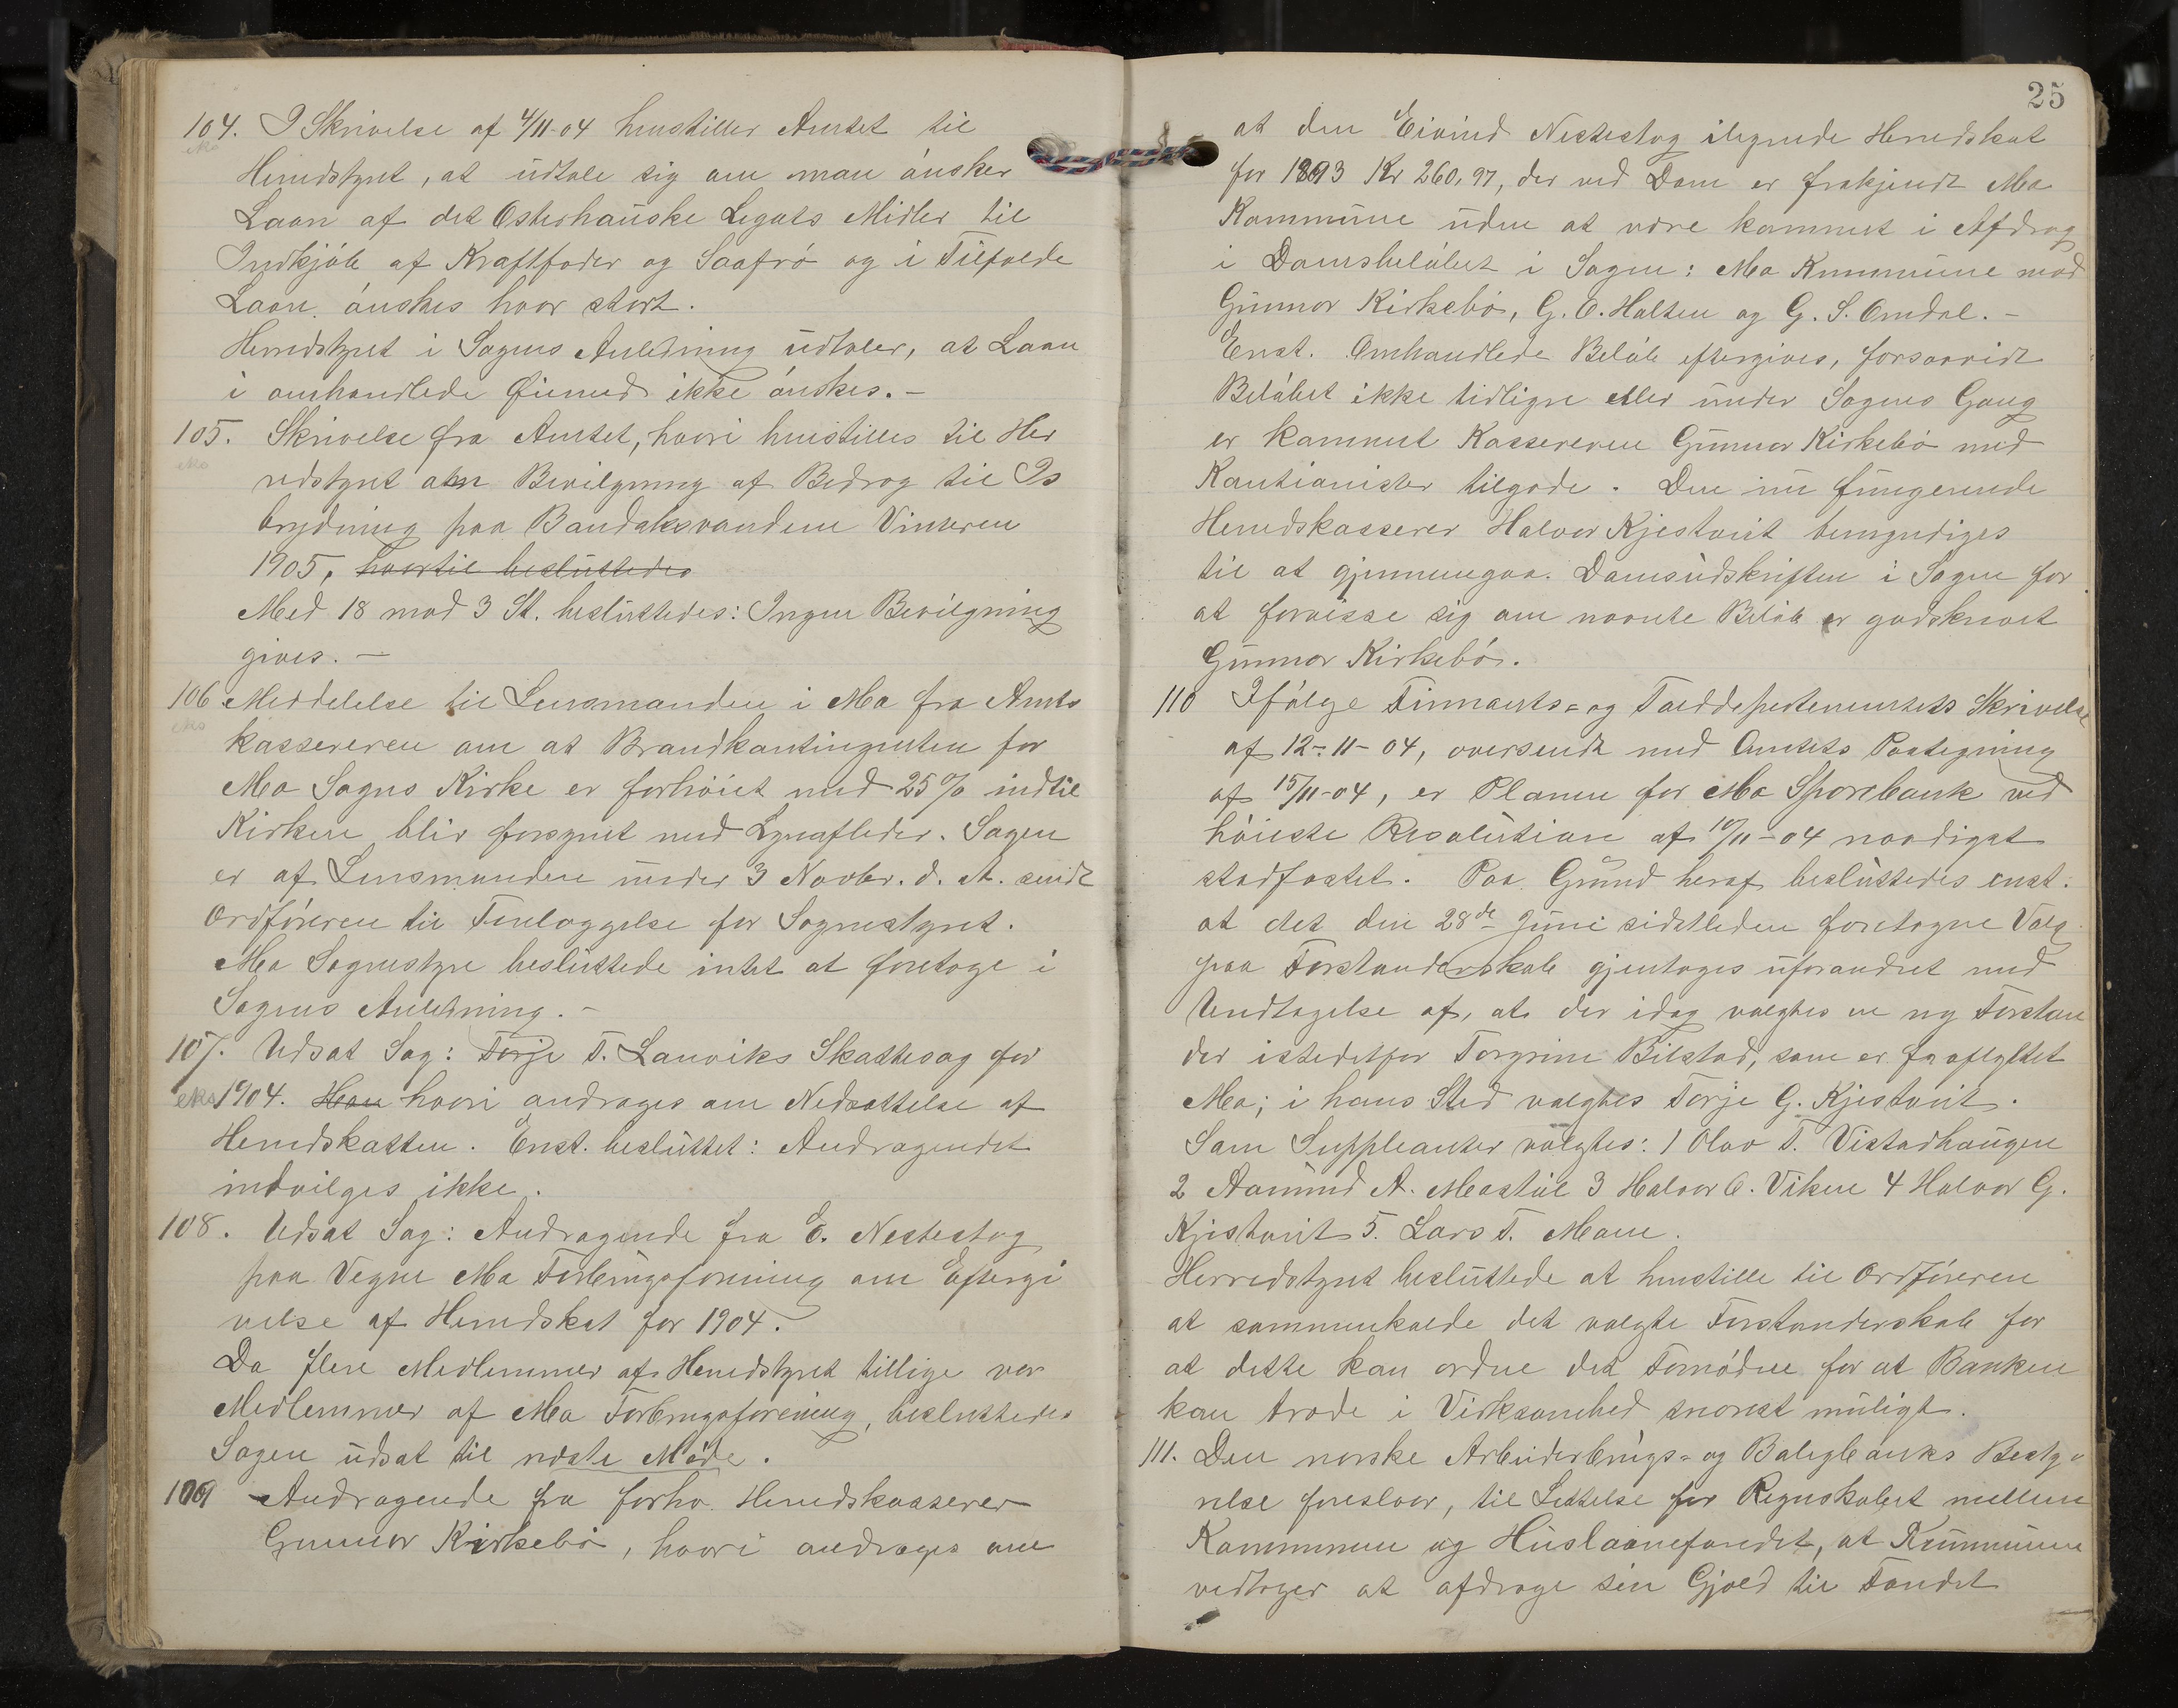 104. I Skrivelse af 4/11-04 henstiller Amtet til
eks
Herredstyret, at udtale sig om man ønsker
Laan af det Osterhauske Legats Midler til
Indkjøb af Kraftfoder og Saafrø og i Tilfælde
Laan ønskes hvor stort.
Herredstyret i Sagens Anledning udtaler, at Laan
i omhandlede Øiemed ikke ønskes.-
105. Skrivelse fra Amtet, hvori henstilles til Her
eks
redstyret om Bevilgning af Bedrag til Is
brydning paa Bandaksvandene Vinteren
1905, hvortil besluttedes
Med 18 mod 3 St. besluttedes: Ingen Bevilgning
gives. -
106 Meddelelse til Lensmanden i Mo fra Amts
eks
kassereren om at Brandkontingenten for
Mo Sogns Kirke er forhøiet med 25% indtil
Kirken blir forsynet med Lynafleder. Sagen
er af Lensmanden under 3 Novbr. d. A. sendt
Ordføreren til Foreloggelse for Sognestyret.
Mo Sognestyre besluttede intet at foretage i
Sagens Anledning. -
107. Udsat Sag: Torje T. Lauviks Skattesag for
eks 1904. Han hvori andrages om Nedsættelse af
Herredskatten. Enst. besluttet: Andragendet
indvilges ikke.
108. Udsat Sag: Andragende fra E. Nestestog
paa Vegne Mo Forbrugsforening om Eftergi
velse af Herredskat for 1904.
Da flere Medlemmer af Herredstyret tillige var
Medlemmer af Mo Forbrugsforening, besluttedes
Sagen udsat til næste Møde.
109 Andragende fra forhv. Herredskasserer
Gunnar Kirkebø, hvori andrages om
25
at den Eivind Nestestog ilegnede Herredskat
for 1893 Kr 260,97, der ved Dom er frakjendt Mo
Kommune uden at være kommet i Afdrag
i Domsbeløbet i Sagen: Mo Kommune mod
Gunnar Kirkebø, G. O. Holten og G. S. Omdal. -
Enst. Omhandlede Beløb eftergives, forsaavidt
Beløbet ikke tidligre eller under Sagens Gang
er kommet Kassereren Gunnar Kirkebø med
Kautionister tilgode. Den nu fungerende
Herredskasserer Halvor Kjestveit bemyndiges
til at gjennemgaa Domsudskriften i Sagen for
at forvisse sig om nævnte Beløb er godskrevet
Gunnar Kirkebø.
110 Ifølge Finnants- og Tolddepartementets Skrivelse
af 12-11-04, oversendt med Amtets Paategning
af 15/11-04, er Planen for Mo Sparebank ved
høieste Resolution af 10/11-04 naadigst
stadfæstet. Paa Grund heraf besluttedes enst.
at det den 28de Juni sidstleden foretagne Valg
paa Forstanderskab gjentages uforandret med
Undtagelse af, at der idag valgtes en ny Forstan
der istedetfor Torgrim Bilstad, som er fraflyttet
Mo; i hans Sted valgtes Torje G. Kjestveit.
Som Suppleanter valgtes: 1 Olav T. Vistadhaugen
2 Aamund A. Mostul 3 Halvor O. Viken 4 Halvor G.
Kjistveit 5. Lars T. Moen.
Herredstyret besluttede at henstille til Ordføreren
at sammenkalde det valgte Forstanderskab for
at dette kan ordne det Fornødne for at Banken
kan træde i Virksomhed snarest muligt.
111. Den norske Arbeiderbrugs- og Boligbanks Besty-
relse foreslaar, til Lettelse for Regnskabet mellem
Kommunen og Huslaanefondet, at Kommunen
vedtager at afdrage sin Gjæld til Fondet